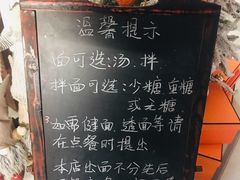 温馨提示
面可选:汤、拌
拌面可选:少糖 重糖
或无糖
如需健面、透面等请
在点餐时提出
本店出面不分先后